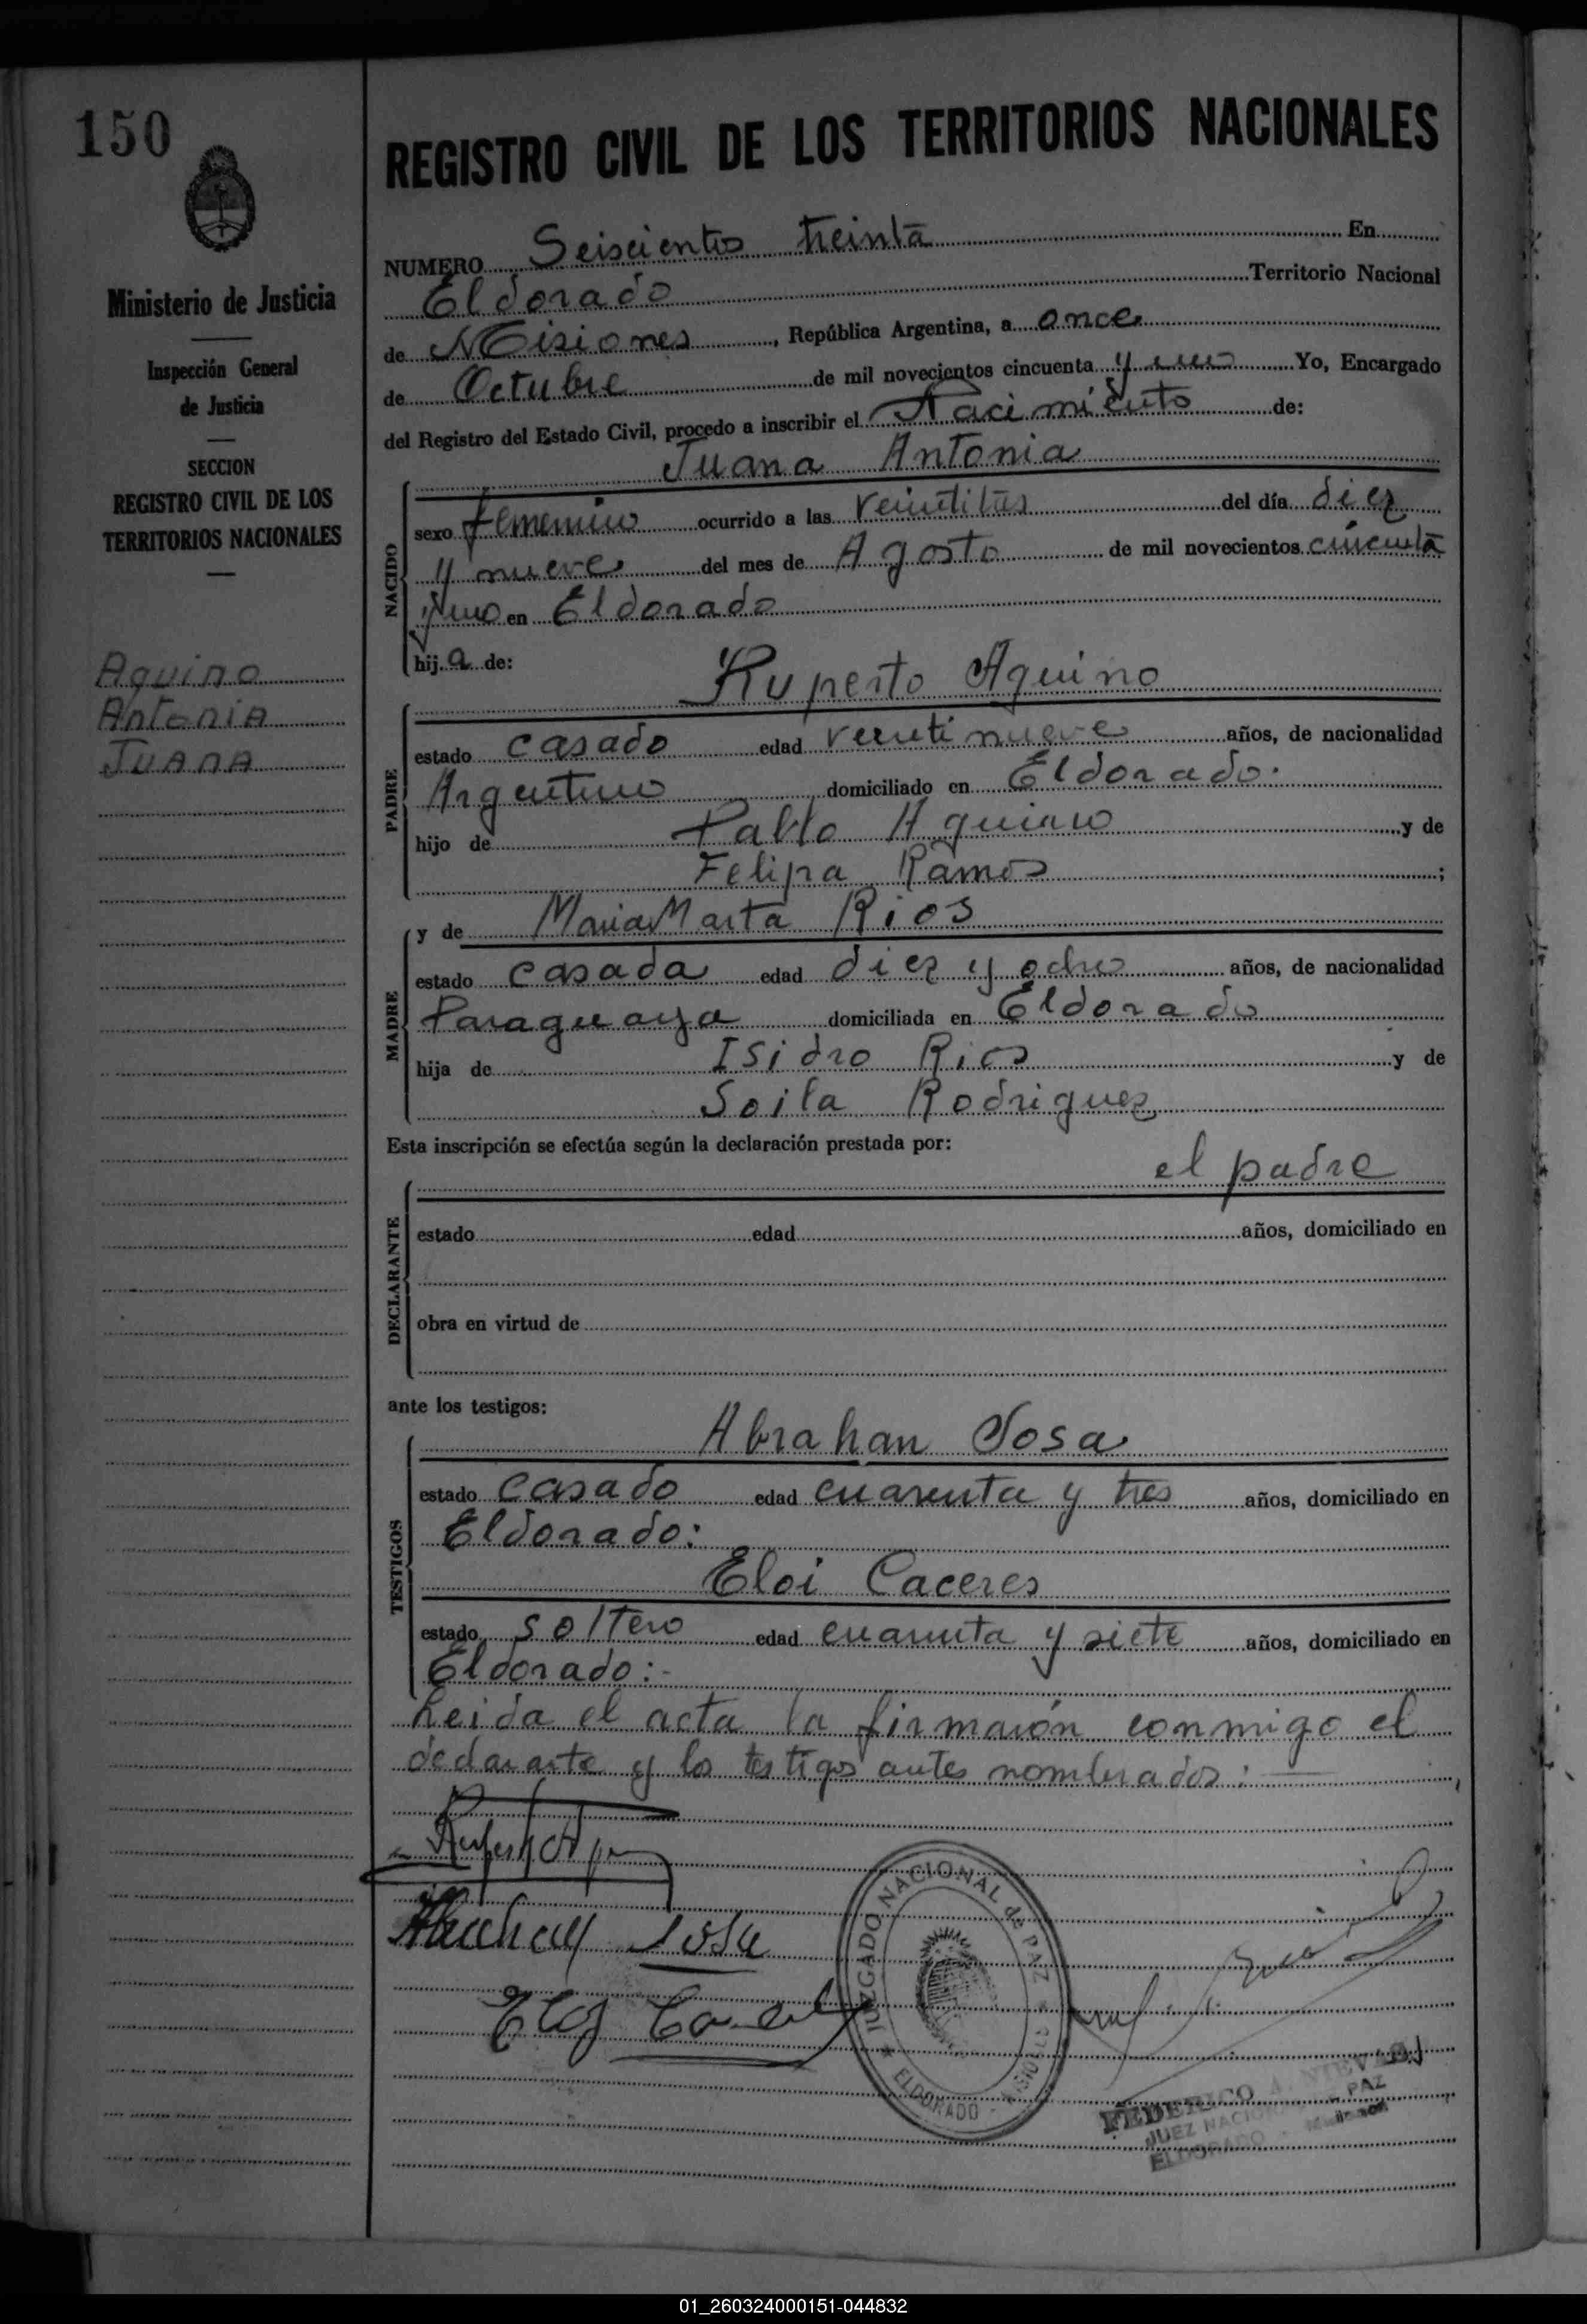 150
Ministerio de Justicia
Inspección General
de Justicia
SECCION
REGISTRO CIVIL DE LOS
TERRITORIOS NACIONALES
Aquino
Antonia
Juana
REGISTRO CIVIL DE LOS TERRITORIOS NACIONALES
NUMERO Seiscientos treinta En
Eldorado Territorio Nacional
de Misiones, República Argentina, a once
de Octubre de mil novecientos cincuenta y uno Yo, Encargado
del Registro del Estado Civil, procedo a inscribir el Nacimiento de:
Juana Antonia
NACIDO
sexo femenino ocurrido a las veintitres del día diez
y nueve del mes de Agosto de mil novecientos cincuenta
y uno en Eldorado
hija de:
Ruperto Aquino
PADRE
estado casado edad veintinueve años, de nacionalidad
Argentino domiciliado en Eldorado.
hijo de Pablo Aquino y de
Felipa Ramos ;
y de Maria Marta Rios
MADRE
estado casada edad diez y ocho años, de nacionalidad
Paraguaya domiciliada en Eldorado
hija de Isidro Rios y de
Soila Rodriguez
Esta inscripción se efectúa según la declaración prestada por:
el padre
DECLARANTE
estado edad años, domiciliado en
obra en virtud de
ante los testigos:
Abrahan Sosa
TESTIGOS
estado casado edad cuarenta y tres años, domiciliado en
Eldorado:
Eloi Caceres
estado soltero edad cuarenta y siete años, domiciliado en
Eldorado:-
Leida el acta la firmarón conmigo el
declarante y los testigos antes nombrados: —
Abrahan Sosa
JUZGADO NACIONAL de PAZ
ELDORADO - MISIONES
FEDERICO A. NIEVAS
JUEZ NACIONAL DE PAZ
ELDORADO - Misiones
01_260324000151-044832